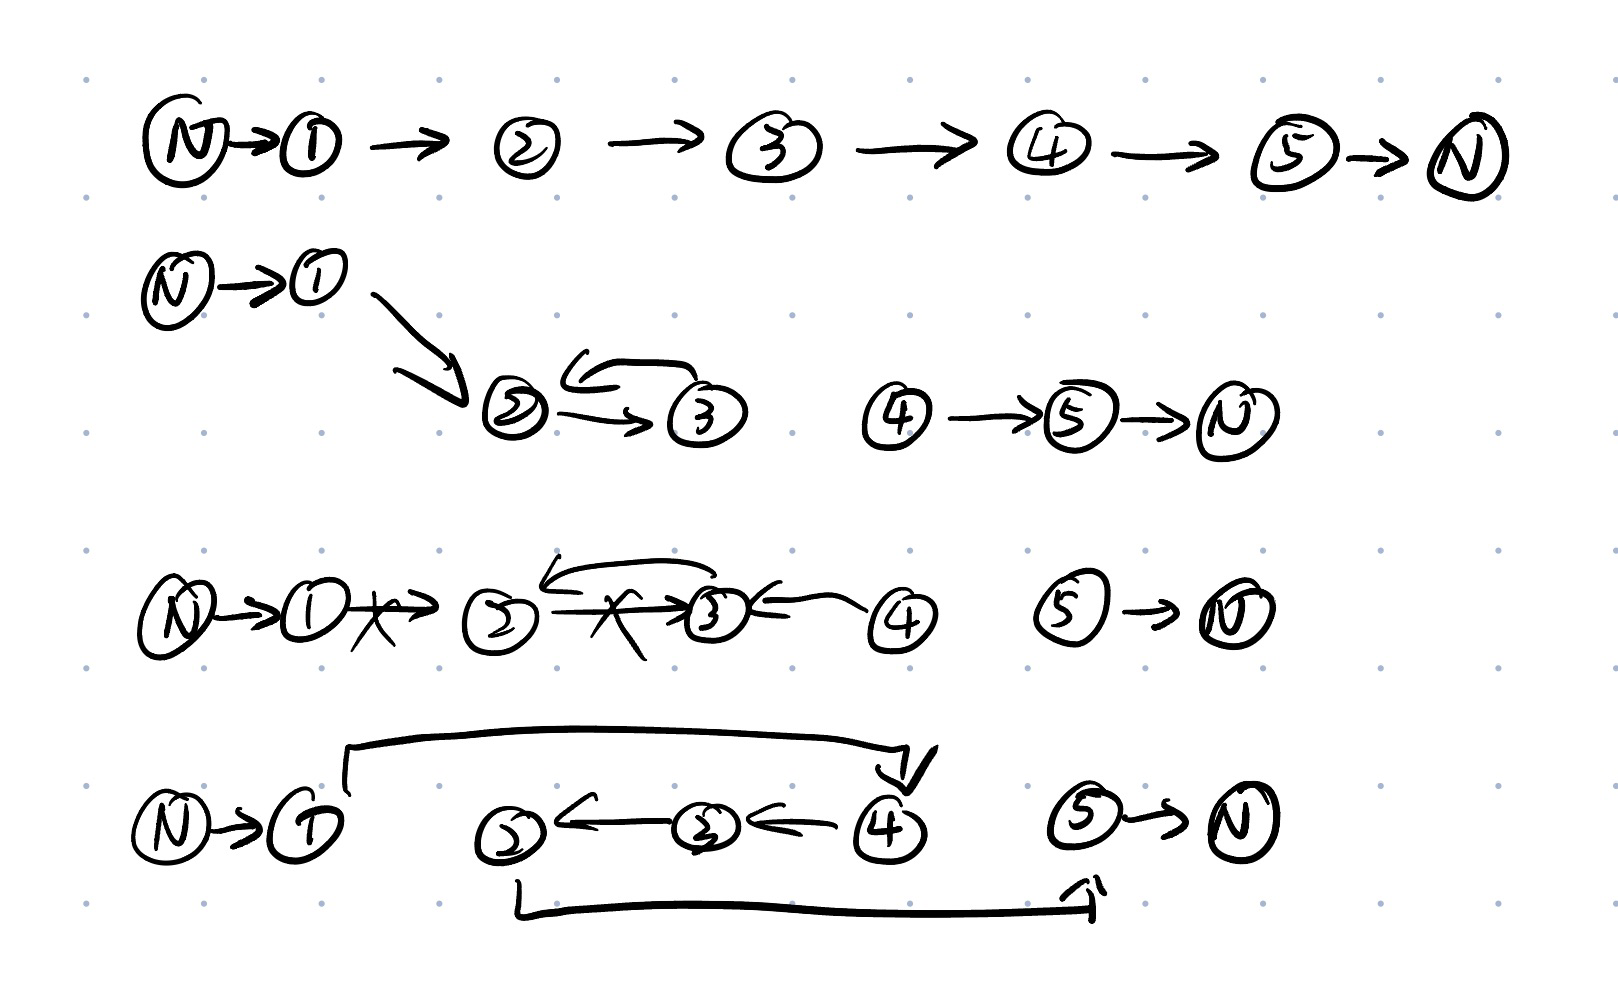 N → 1 → 2 → 3 → 4 → 5 → N
N → 1
2 3 4 → 5 → N
N → 1 → 2 → 3 ← 4 5 → N
N → 1 2 ← 3 ← 4 5 → N